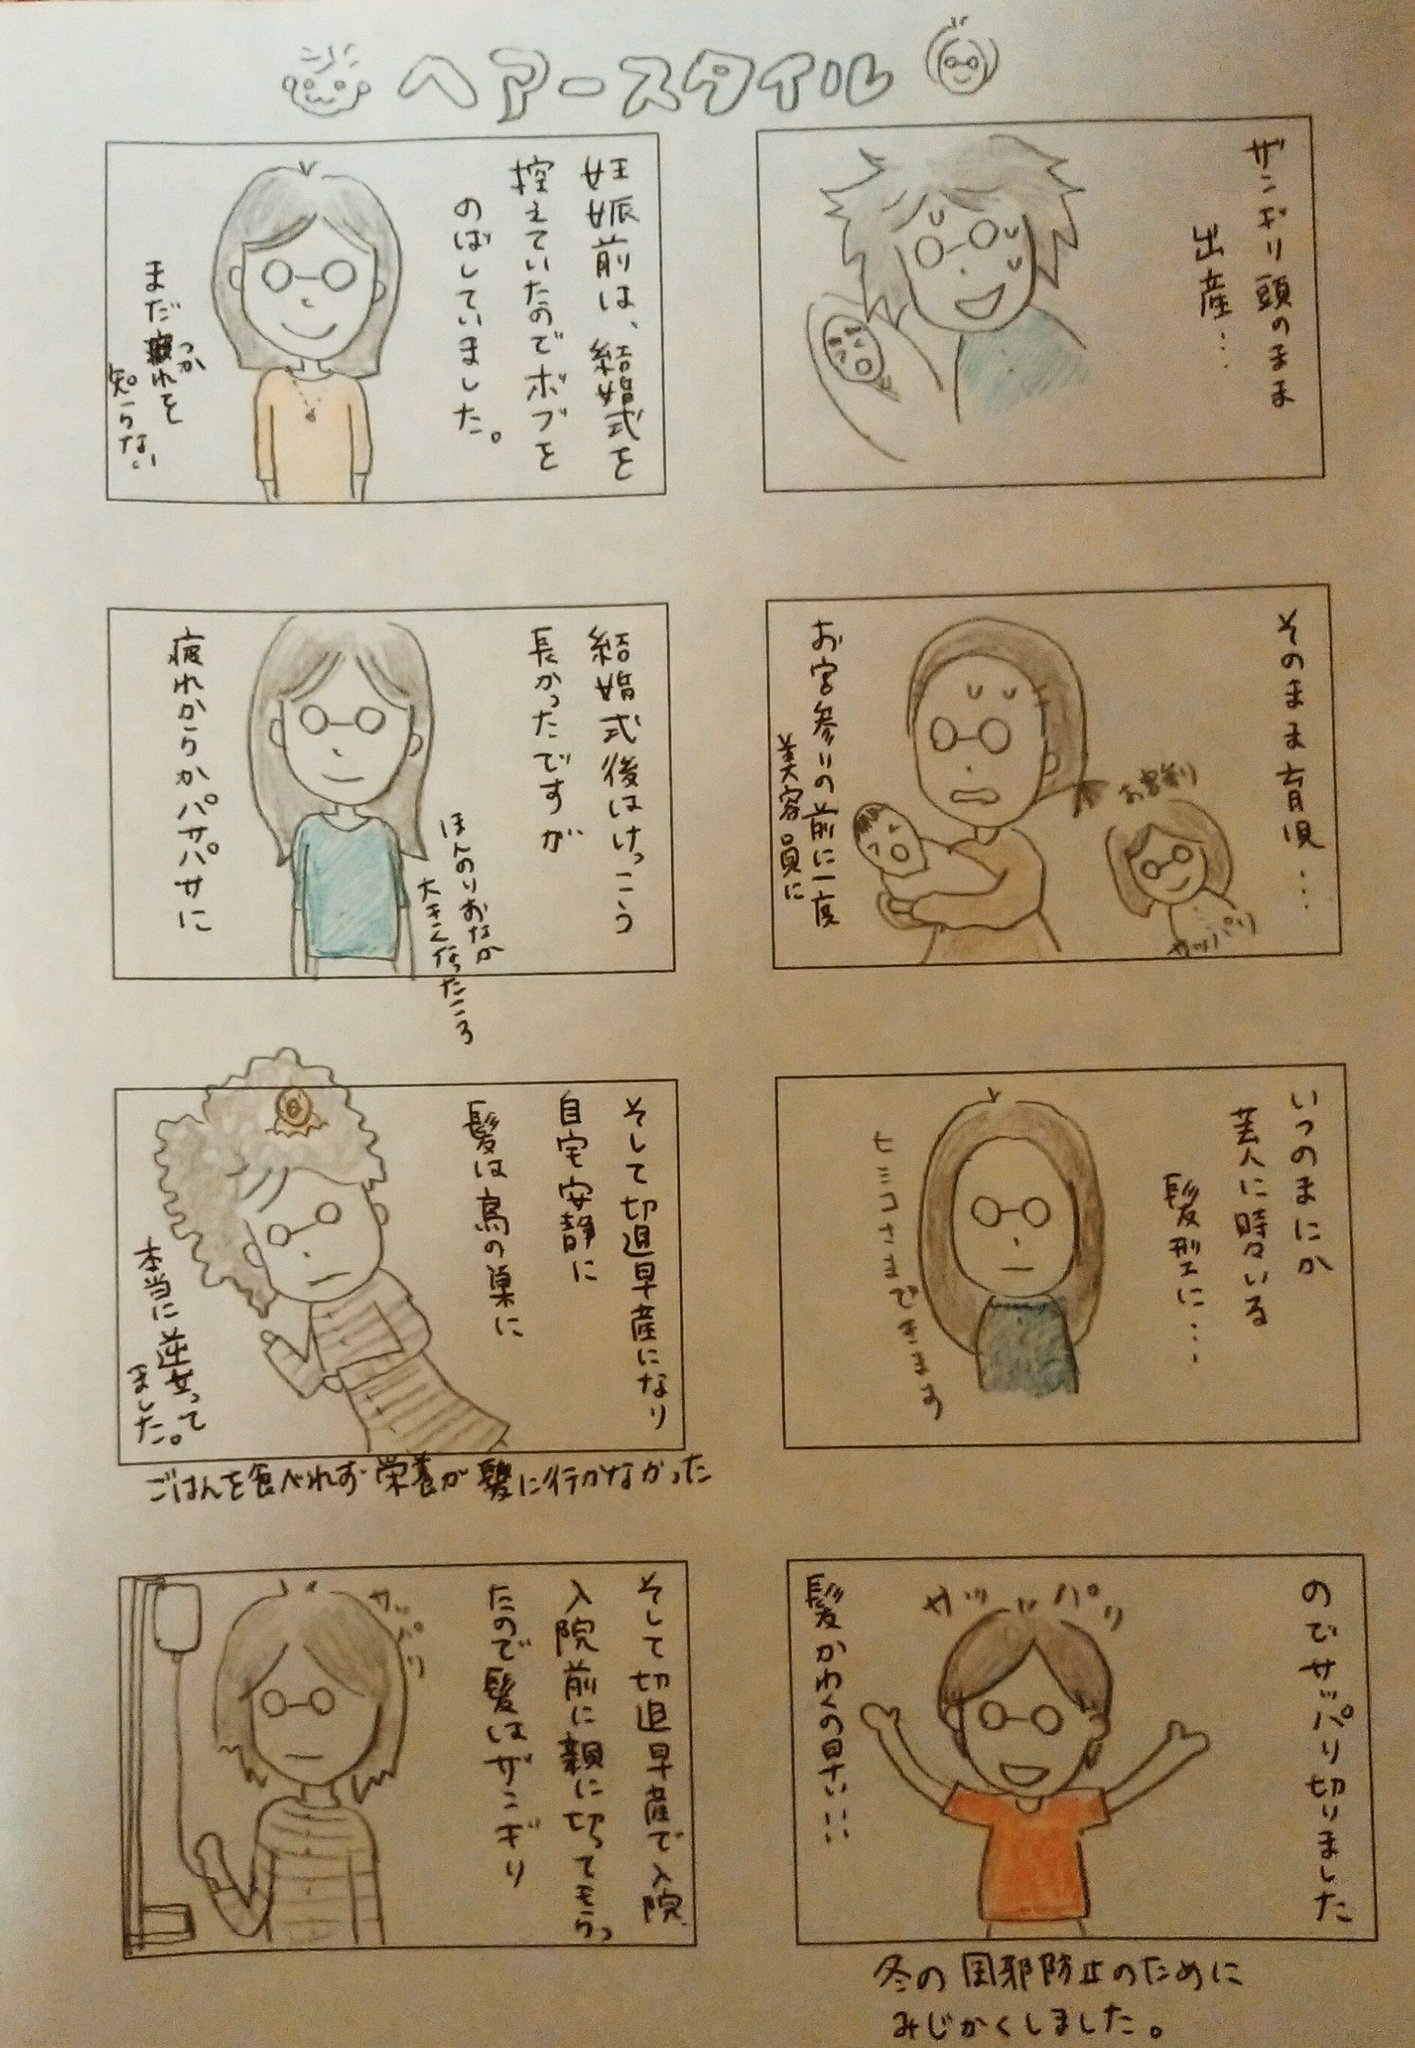 ヘアースタイル
妊娠前は、結婚式を
控えていたのでボブを
のばしていました。
まだ疲れを
つか
知らない
結婚式後はけっこう
長かったですが
ほんのりおなか
大きくなったころ
疲れからかパサパサに
そして切迫早産になり
自宅安静に
髪は鳥の巣に
本当に逆立って
ました。
ごはんを食べれず栄養が髪に行かなかった
そして切迫早産で入院
入院前に親に切ってもらっ
たので髪はザンギり
サッパリ
ザンギリ頭のまま
出産…
そのまま育児…
お宮参り
サッパリ
お宮参りの前に一度
美容員に
いつのまにか
芸人に時々いる
髪型に…
ヒミコさまできます
のでサッパリ切りました
サッパリ
髪かわくの早い!!
冬の風邪防止のために
みじかくしました。